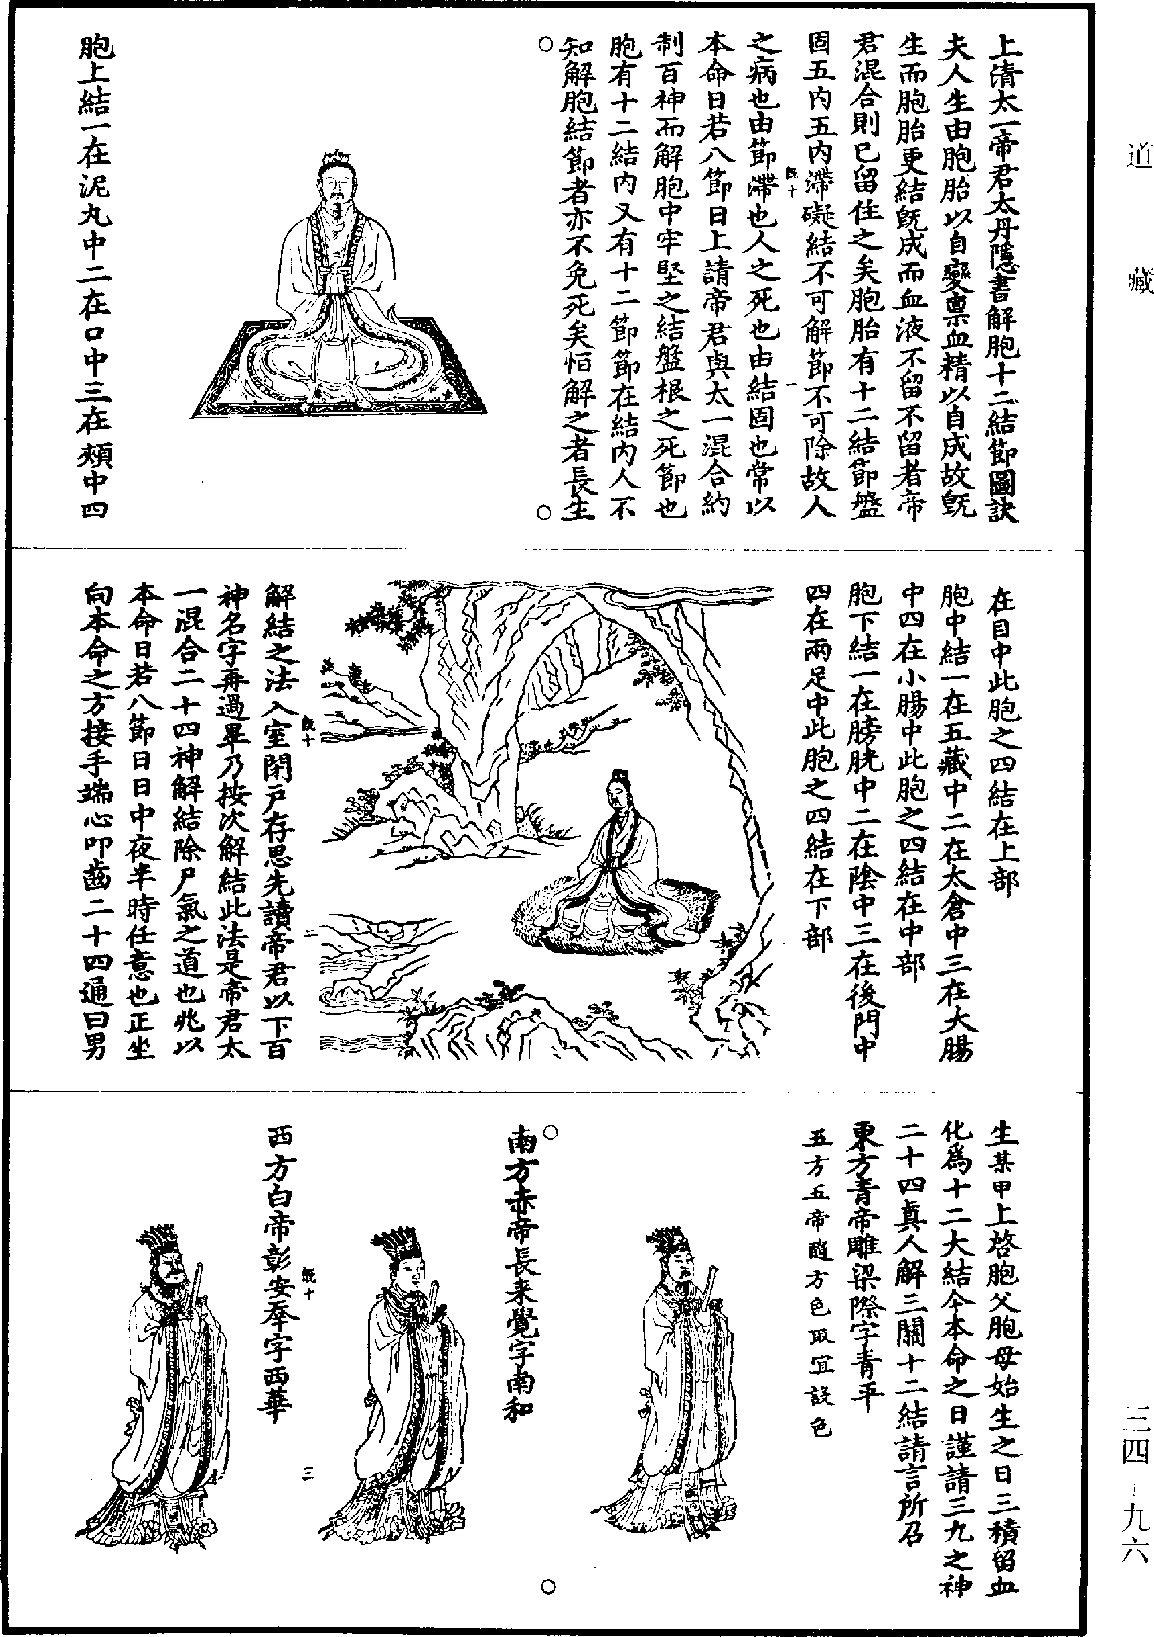 道藏
上清太一帝君太丹隱書解胞十二結節圖訣
夫人生由胞胎以自變稟血精以自成故旣
生而胞胎更結旣成而血液不留不留者帝
君混合則已留住之矣胞胎有十二結節盤
固五内五内滯礙結不可解節不可除故人
旣十
一
之病也由節滯也人之死也由結固也常以
本命日若八節日上請帝君與太一混合約
制百神而解胞中牢堅之結盤根之死節也
胞有十二結内又有十二節節在結内人不
知解胞結節者亦不免死矣恒解之者長生
○
○
胞上結一在泥丸中二在口中三在頰中四
在目中此胞之四結在上部
胞中結一在五藏中二在太倉中三在大腸
中四在小腸中此胞之四結在中部
胞下結一在膀胱中二在陰中三在後門中
四在兩足中此胞之四結在下部
旣十
二
解結之法入室閉戸存思先讀帝君以下百
神名字再過畢乃按次解結此法是帝君太
一混合二十四神解結除尸氣之道也兆以
本命日若八節日日中夜半時任意也正坐
向本命之方接手端心叩齒二十四通曰男
生某甲上啓胞父胞母始生之日三積留血
化爲十二大結今本命之日謹請三九之神
二十四真人解三關十二結請言所召
東方青帝雕梁際字青平
五方五帝隨方色取宜設色
○
○
南方赤帝長來覺字南和
旣十
三
西方白帝彰安辱字西華
三四-九六